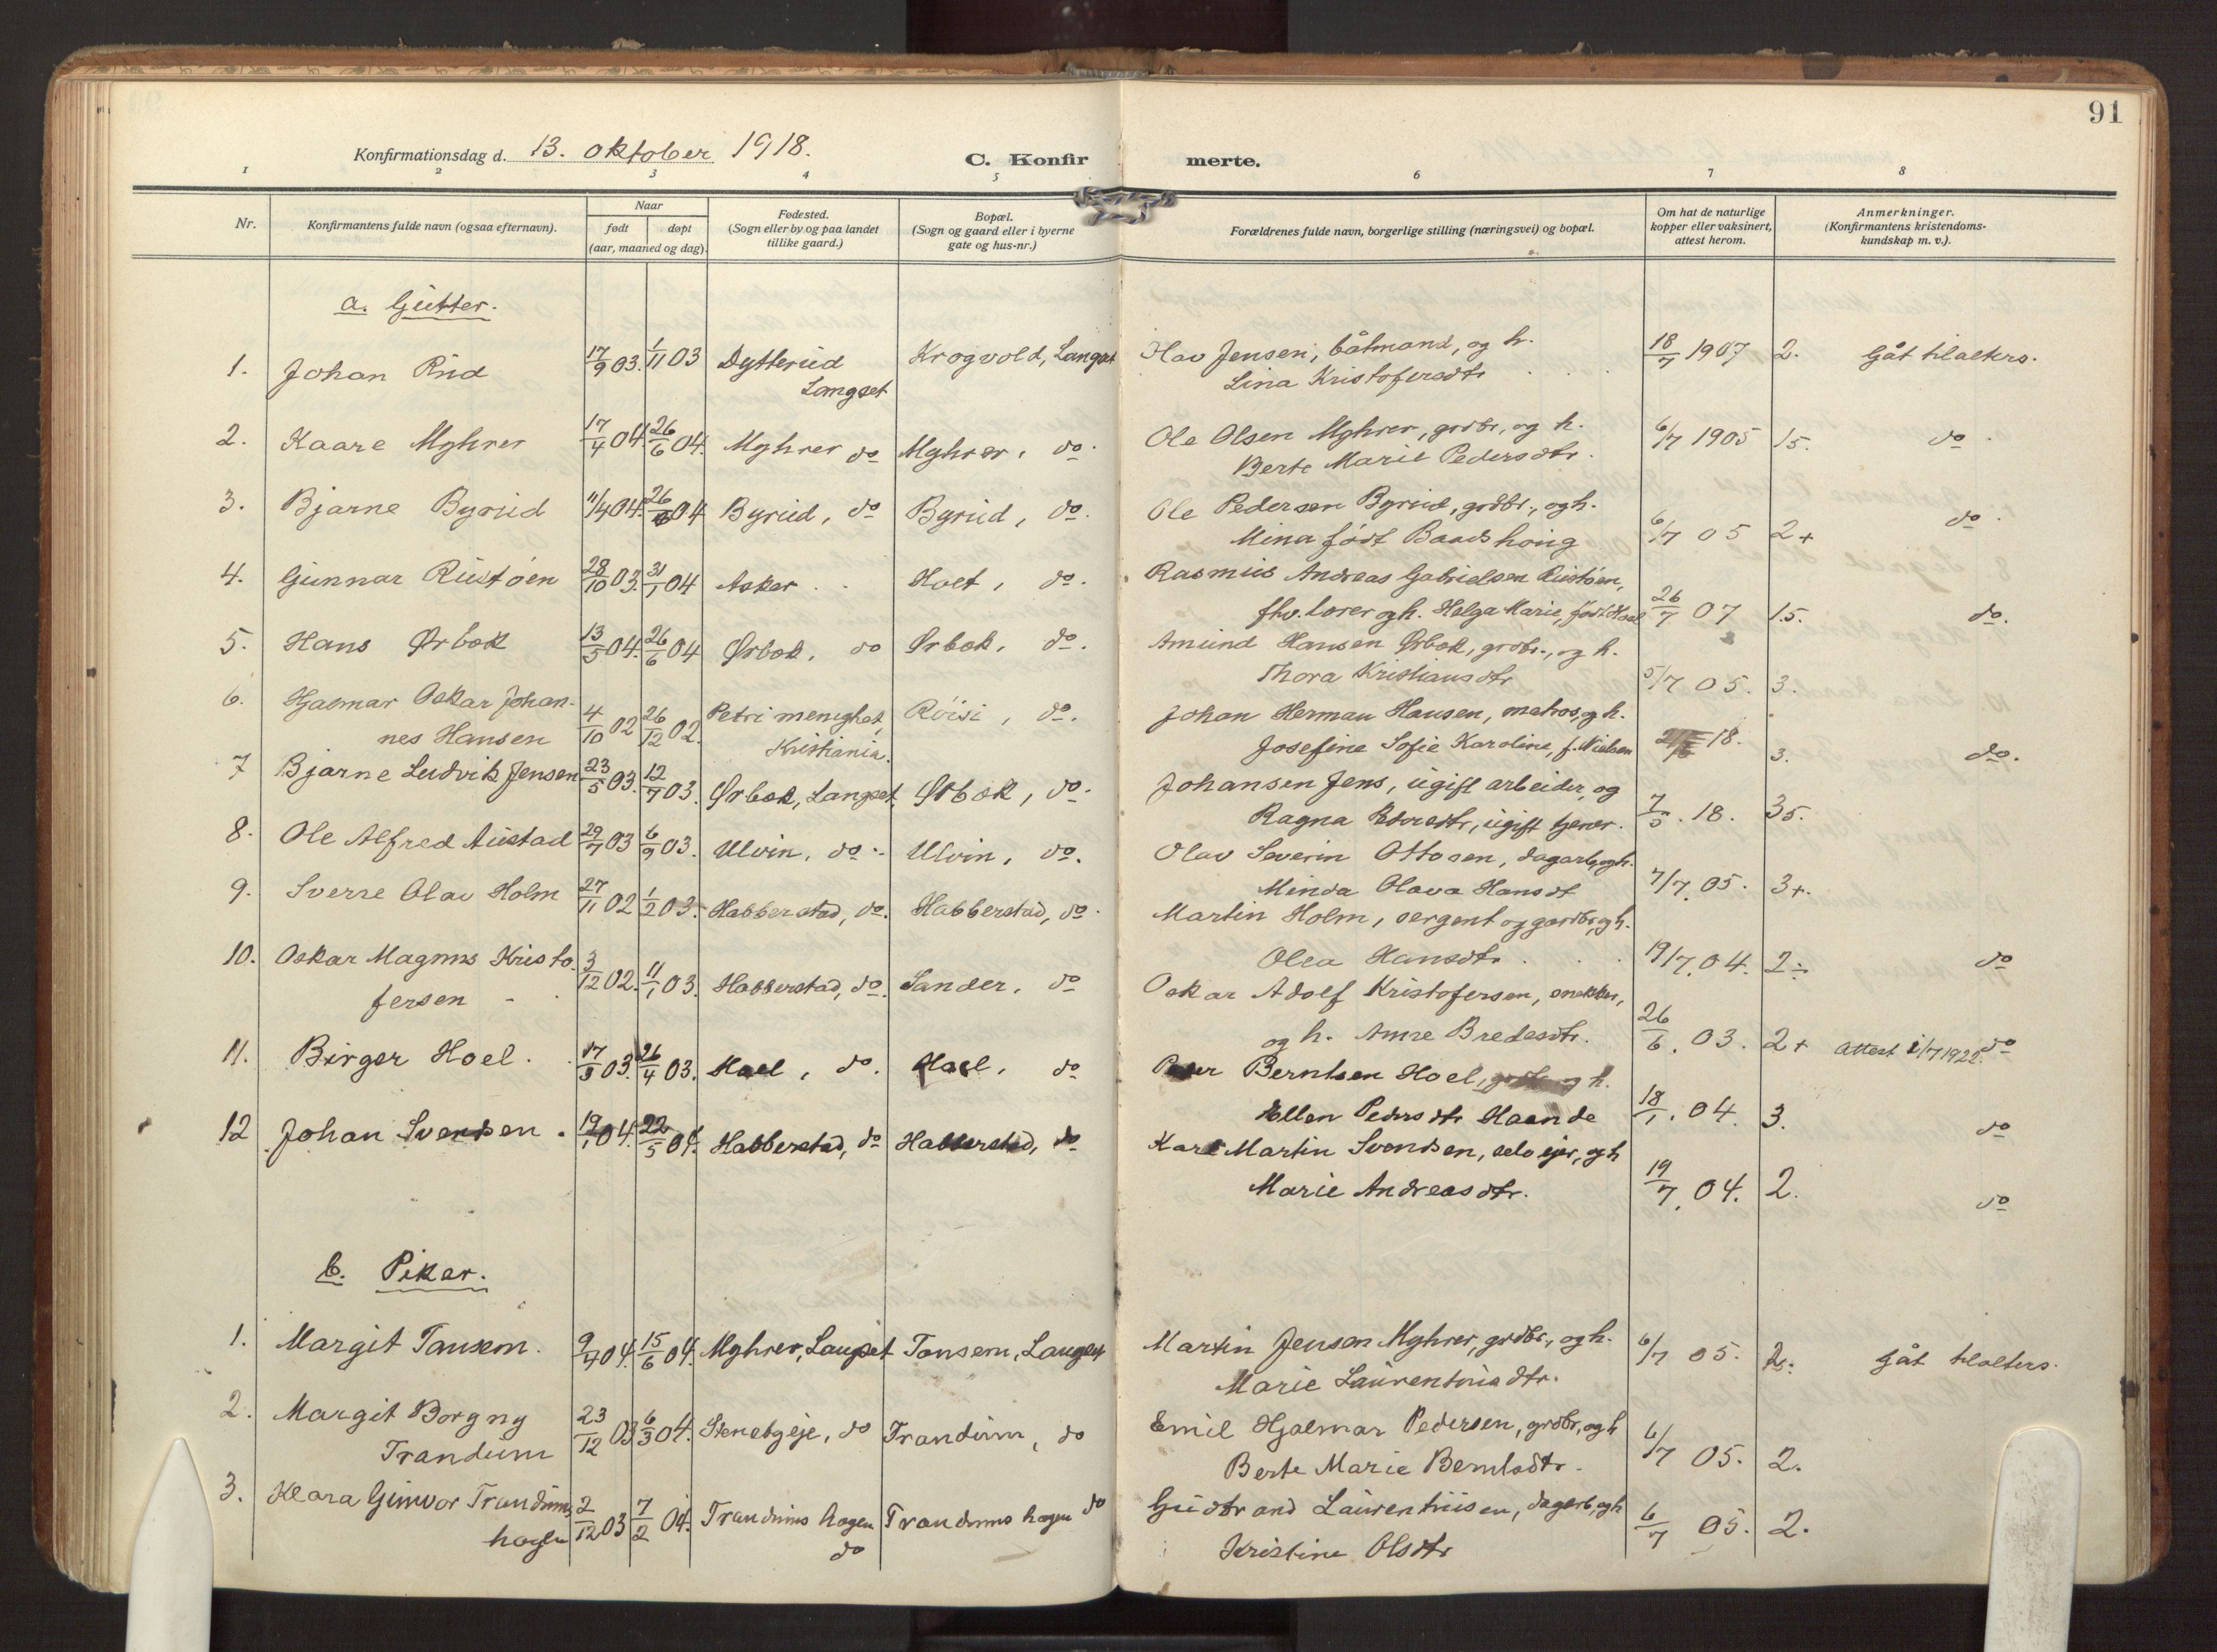 91
Konfirmationsdag d. 13. oktober 1918.
C. Konfir merte.
1 2 3 4 5 6 7 8
Nr.
Konfirmantens fulde navn (ogsaa efternavn).
Naar
født døpt
(aar, maaned og dag).
Fødested.
(Sogn eller by og paa landet
tillike gaard.)
Bopæl.
(Sogn og gaard eller i byerne
gate og hus-nr.)
Forældrenes fulde navn, borgerlige stilling (næringsvei) og bopæl.
Om hat de naturlige
kopper eller vaksinert,
attest herom.
Anmerkninger.
(Konfirmantens kristendoms-
kundskap m. v.).
a. Gutter.
1. Johan Rud 17/9 03. 1/11 03 Dytterud Krogvold, Langset Olav Jensen, båtmand, og h. 18/7 1907 2. Gåt tilalters.
Langset Lina Kristofersdtr
2. Kaare Myhrer 17/4 04 26/6 04. Myhrer do Myhrer, do. Ole Olsen Myhrer, grdbr., og h. 6/7 1905 1.5. do.
Berte Marie Pedersdtr.
3. Bjarne Byrud 11/4 04. 26/6 04 Byrud, do Byrud, do. Ole Pedersen Byrud, grdbr., og h. do.
Mina født Baadshoug 6/7 05 2+
4. Gunnar Rustøen 28/10 03. 31/1 04 Asker Hoel, do. Rasmus Andreas Gabrielsen Rustøen,
fhv. lærer og h. Helga Marie, født Hoel 26/7 07 1.5. do.
5. Hans Ørbæk 13/5 04. 26/6 04 Ørbæk, do Ørbæk, do. Amund Hansen Ørbæk, grdbr., og h.
Thora Kristiansdtr 5/7 05. 3.
6. Hjalmar Oskar Johan- 4/10 02 26/12 02. Petri menighet, Røisi, do. Johan Herman Hansen, matros, og h.
nes Hansen Kristiania. Josefine Sofie Karoline, f. Nielsen 18. 3. do.
7 Bjarne Ludvik Jensen 23/5 03. 12/7 03. Ørbæk, Langset Ørbæk, do. Johansen Jens, ugift arbeider, og
Ragna ugift tjener. 7/5. 18. 35.
8. Ole Alfred Austad 29/7 03 6/9 03. Ulvin, do. Ulvin, do. Olav Severin Ottosen, dagarb., og h.
Minda Olava Hansdt 7/7. 05. 3+.
9. Sverre Olav Holm 27/11 02 1/2 03. Habberstad, do. Habberstad, do. Martin Holm, sergent og gardbr., og h.
Olea Hansdtr. 19/7. 04. 2÷ do
10. Oskar Magnus Kristo- 3/12 02. 11/1 03. Habberstad, do. Sander, do Oskar Adolf Kristofersen, snekker,
fersen og h. Anne Bredesdtr. 26/6. 03. 2+ Attest 1/7 1922. do
11. Birger Hoel. 17/3 03. 26/4 03. Hoel, do. Hoel, do Peder Berntsen Hoel, grdbr. og h.
Ellen Pedersdtr Haande 18/1. 04. 3. do
12 Johan Svendsen. 19/1 04. 22/5 04. Habberstad, do Habberstad, do Karl Martin Svendsen, selvejer, og h
Marie Andreasdtr. 19/7. 04. 2. do
b. Piker.
1. Margit Tansem. 9/4 04. 15/6 04. Myhrer, Langset Tansem, Langset Martin Jensen Myhrer, grdbr., og h. 6/7 05. 2. Gåt tilalters.
Marie Laurentiusdtr.
2. Margit Borgny 23/12 03 6/3 04. Stensbyeje, do Trandum, do Emil Hjalmar Pedersen, grdbr., og h 6/7 05. 2.
Trandum Berte Marie Berntsdtr.
3. Klara Gunvor Trandums- 2/12 03 7/2 04. Trandums hagen Trandums hagen do Gudbrand Laurentiusen, dagarb., og h 6/7 05. 2.
hagen do Kristine Olsdtr